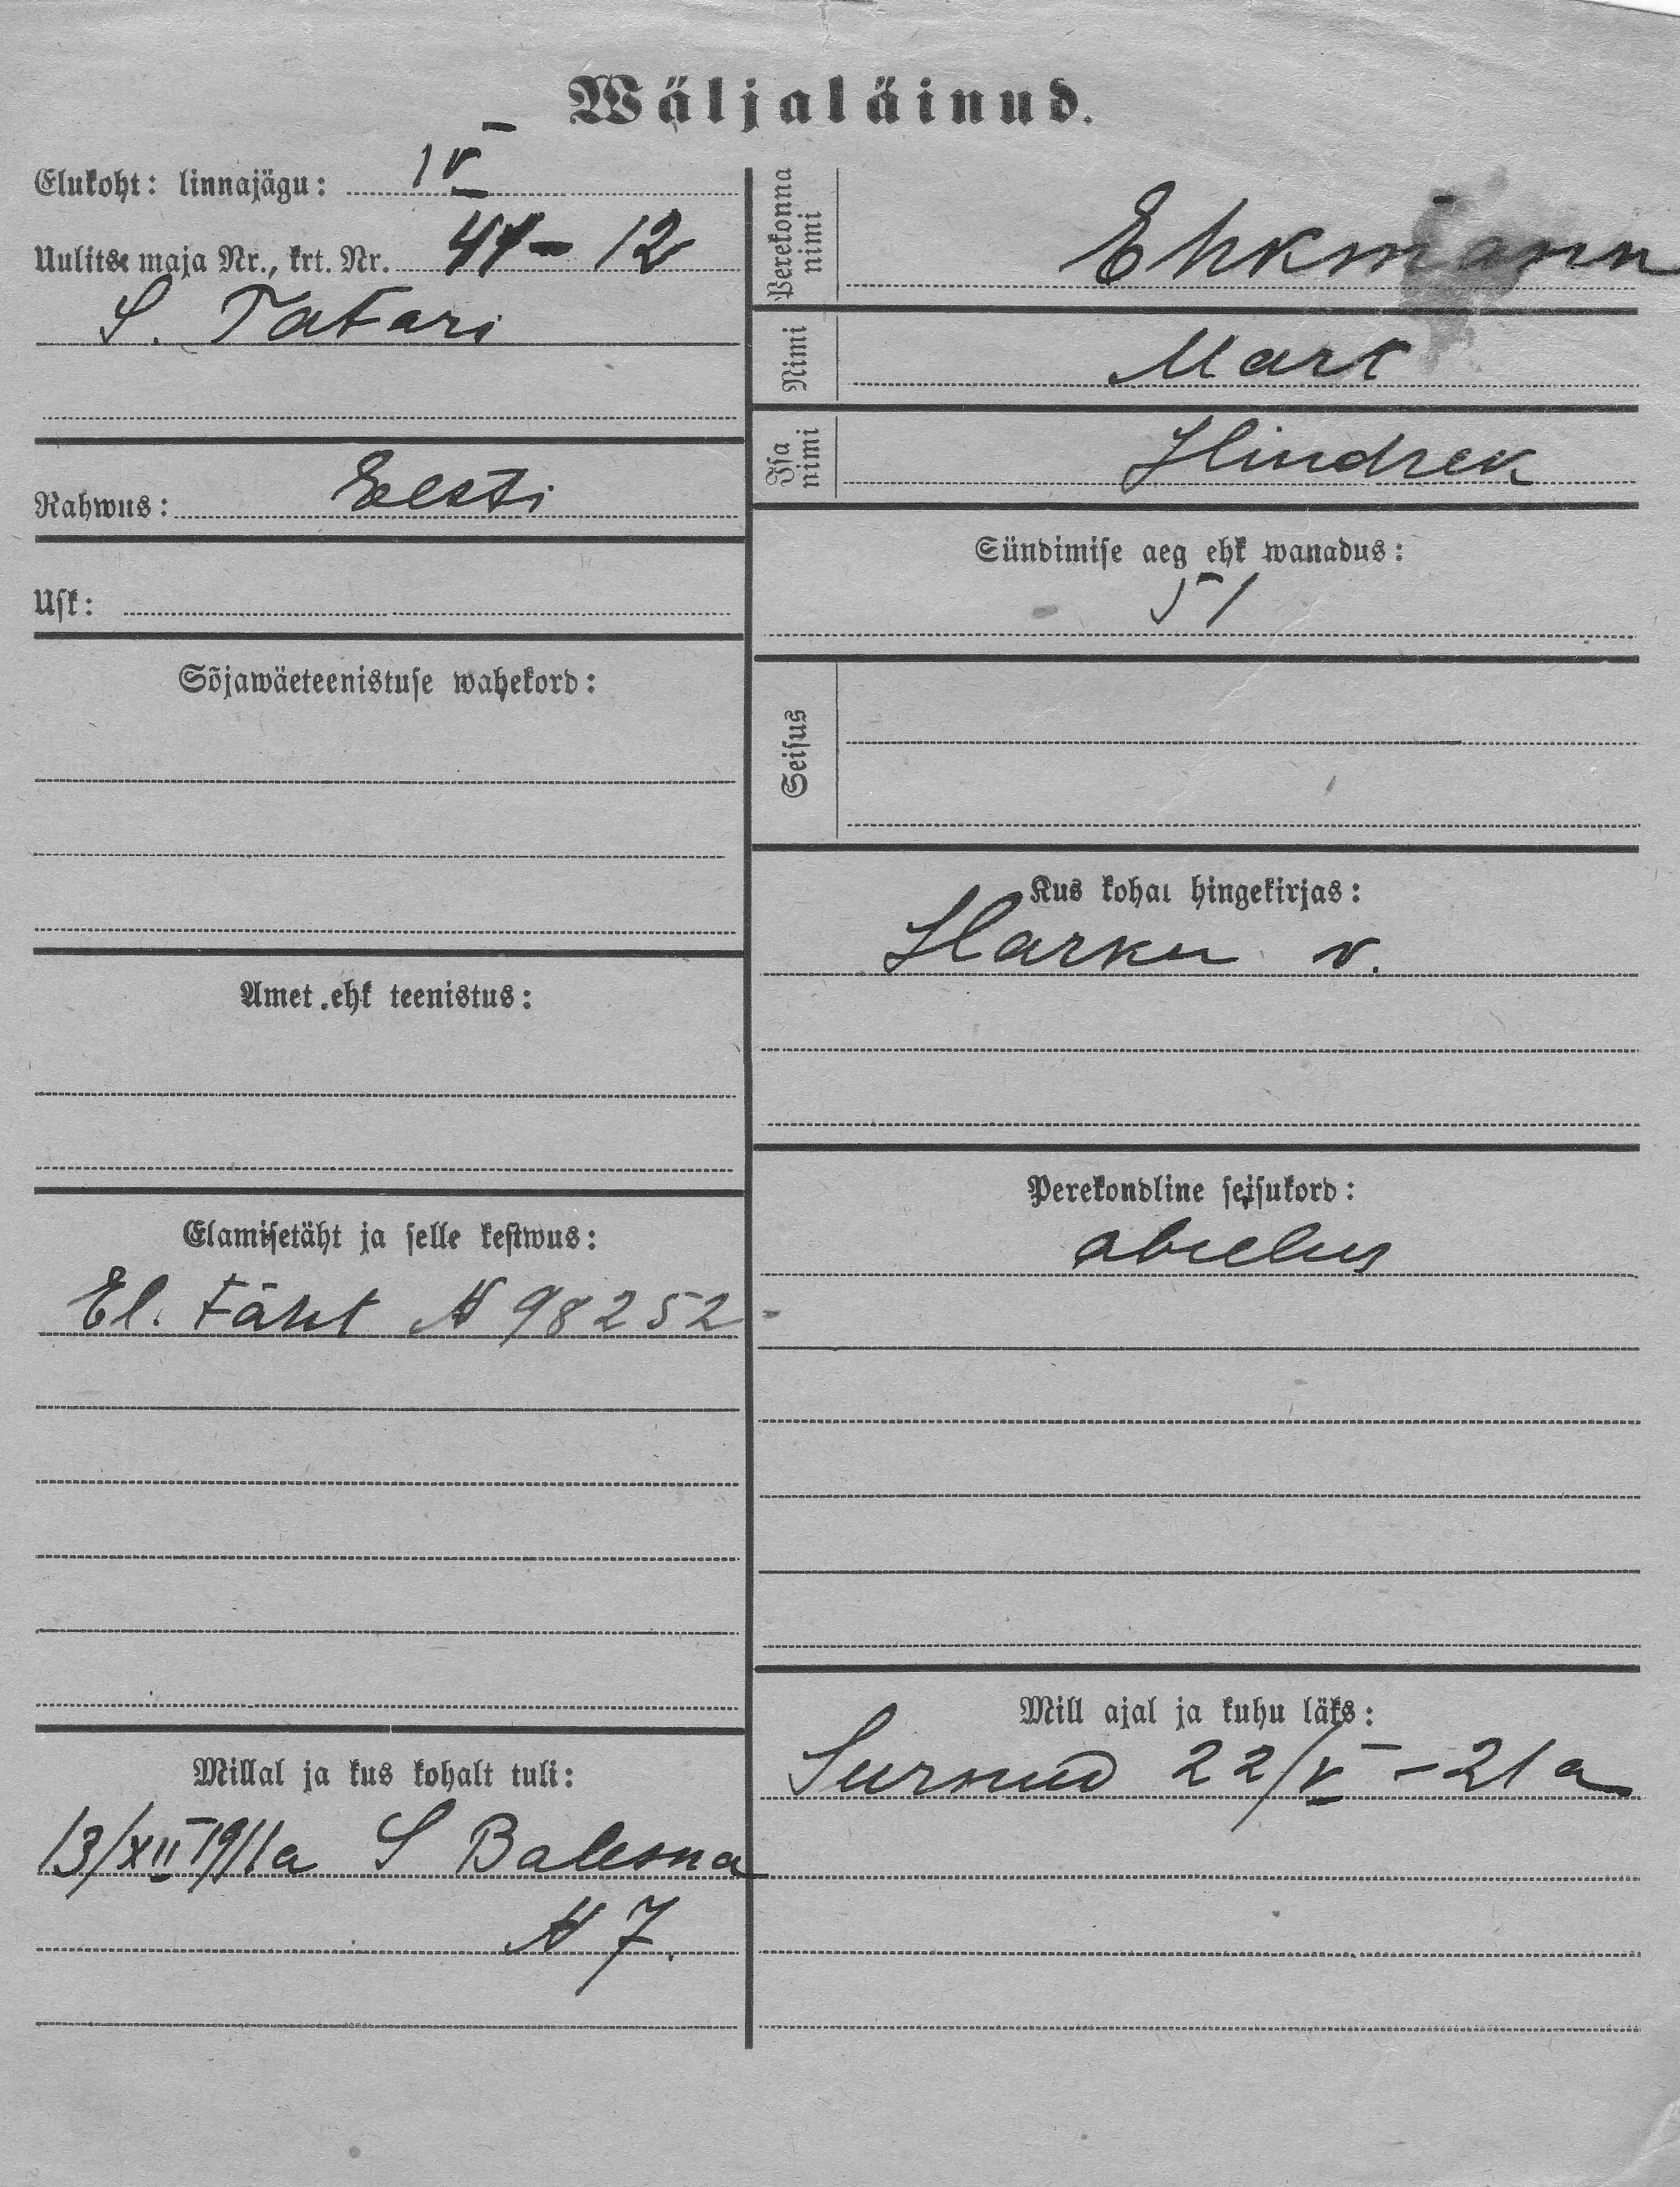 Wäljaläinud.
Elukoht: linnajägu: IV
Uulitse maja Nr., krt. Nr. 44-12
S. Tatari
Rahwus: Eesti
Usk:
Sõjawäeteenistuse wahekord:
Amet ehk teenistus:
Elamisetäht ja selle kestwus:
El. täht N 98252
Millal ja kus kohalt tuli:
13/XII 1911a S
N 7.
Perekonna nimi Ehkmann
Nimi Mart
Isa nimi Hindrek
Sündimise aeg ehk wanadus:
51
Seisus
Kus kohal hingekirjas:
Harku v.
Perekondline seisukord:
abielus
Mill ajal ja kuhu läks:
Surnud 22/V -21 a